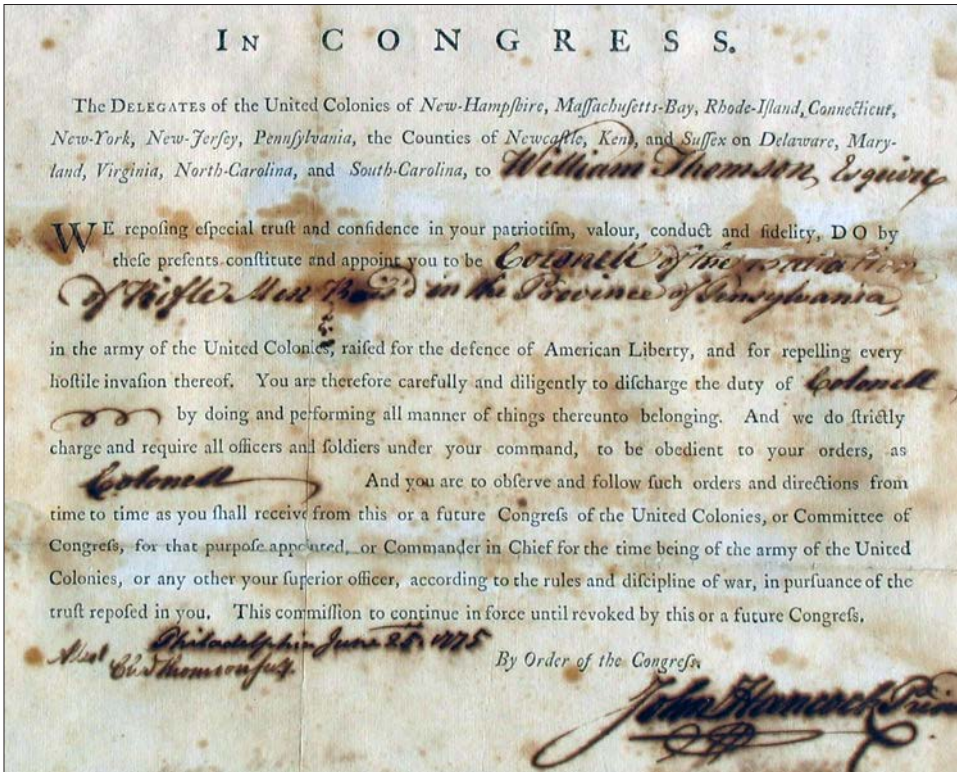 IN CONGRESS.
The DELEGATES of the United Colonies of New-Hampſhire, Maſſachuſetts-Bay, Rhode-Iſland, Connecticut,
New-York, New-Jerſey, Pennſylvania, the Counties of Newcaſtle, Kent, and Suſſex on Delaware, Mary-
land, Virginia, North-Carolina, and South-Carolina, to William Thomson, Esquire
WE repoſing eſpecial truſt and confidence in your patriotiſm, valour, conduct and fidelity, DO by
theſe preſents conſtitute and appoint you to be Colonell of the Battalion
of Rifle Men Rais'd in the Province of Pensylvania,
in the army of the United Colonies, raiſed for the defence of American Liberty, and for repelling every
hoſtile invaſion thereof. You are therefore carefully and diligently to diſcharge the duty of Colonell
by doing and performing all manner of things thereunto belonging. And we do ſtrictly
charge and require all officers and ſoldiers under your command, to be obedient to your orders, as
Colonell And you are to obſerve and follow ſuch orders and directions from
time to time as you ſhall receive from this or a future Congreſs of the United Colonies, or Committee of
Congreſs, for that purpoſe appointed, or Commander in Chief for the time being of the army of the United
Colonies, or any other your ſuperior officer, according to the rules and diſcipline of war, in purſuance of the
truſt repoſed in you. This commiſſion to continue in force until revoked by this or a future Congreſs.
Philadelphia June 25. 1775
Attest Cha Thomson secy.
By Order of the Congreſs.
John Hancock